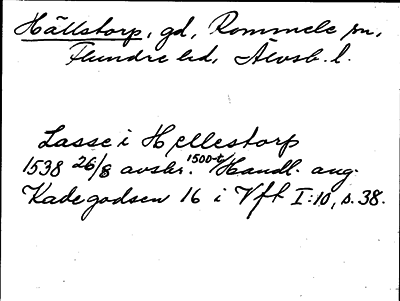 Hällstorp, gd, Rommele sn,
Flundre hd, Älvsb. l.
Lasse i Hellestorp
1538 26/8 avskr. 1500-t. Handl. ang.
Kadegodsen 16 i Vft I:10, s. 38.